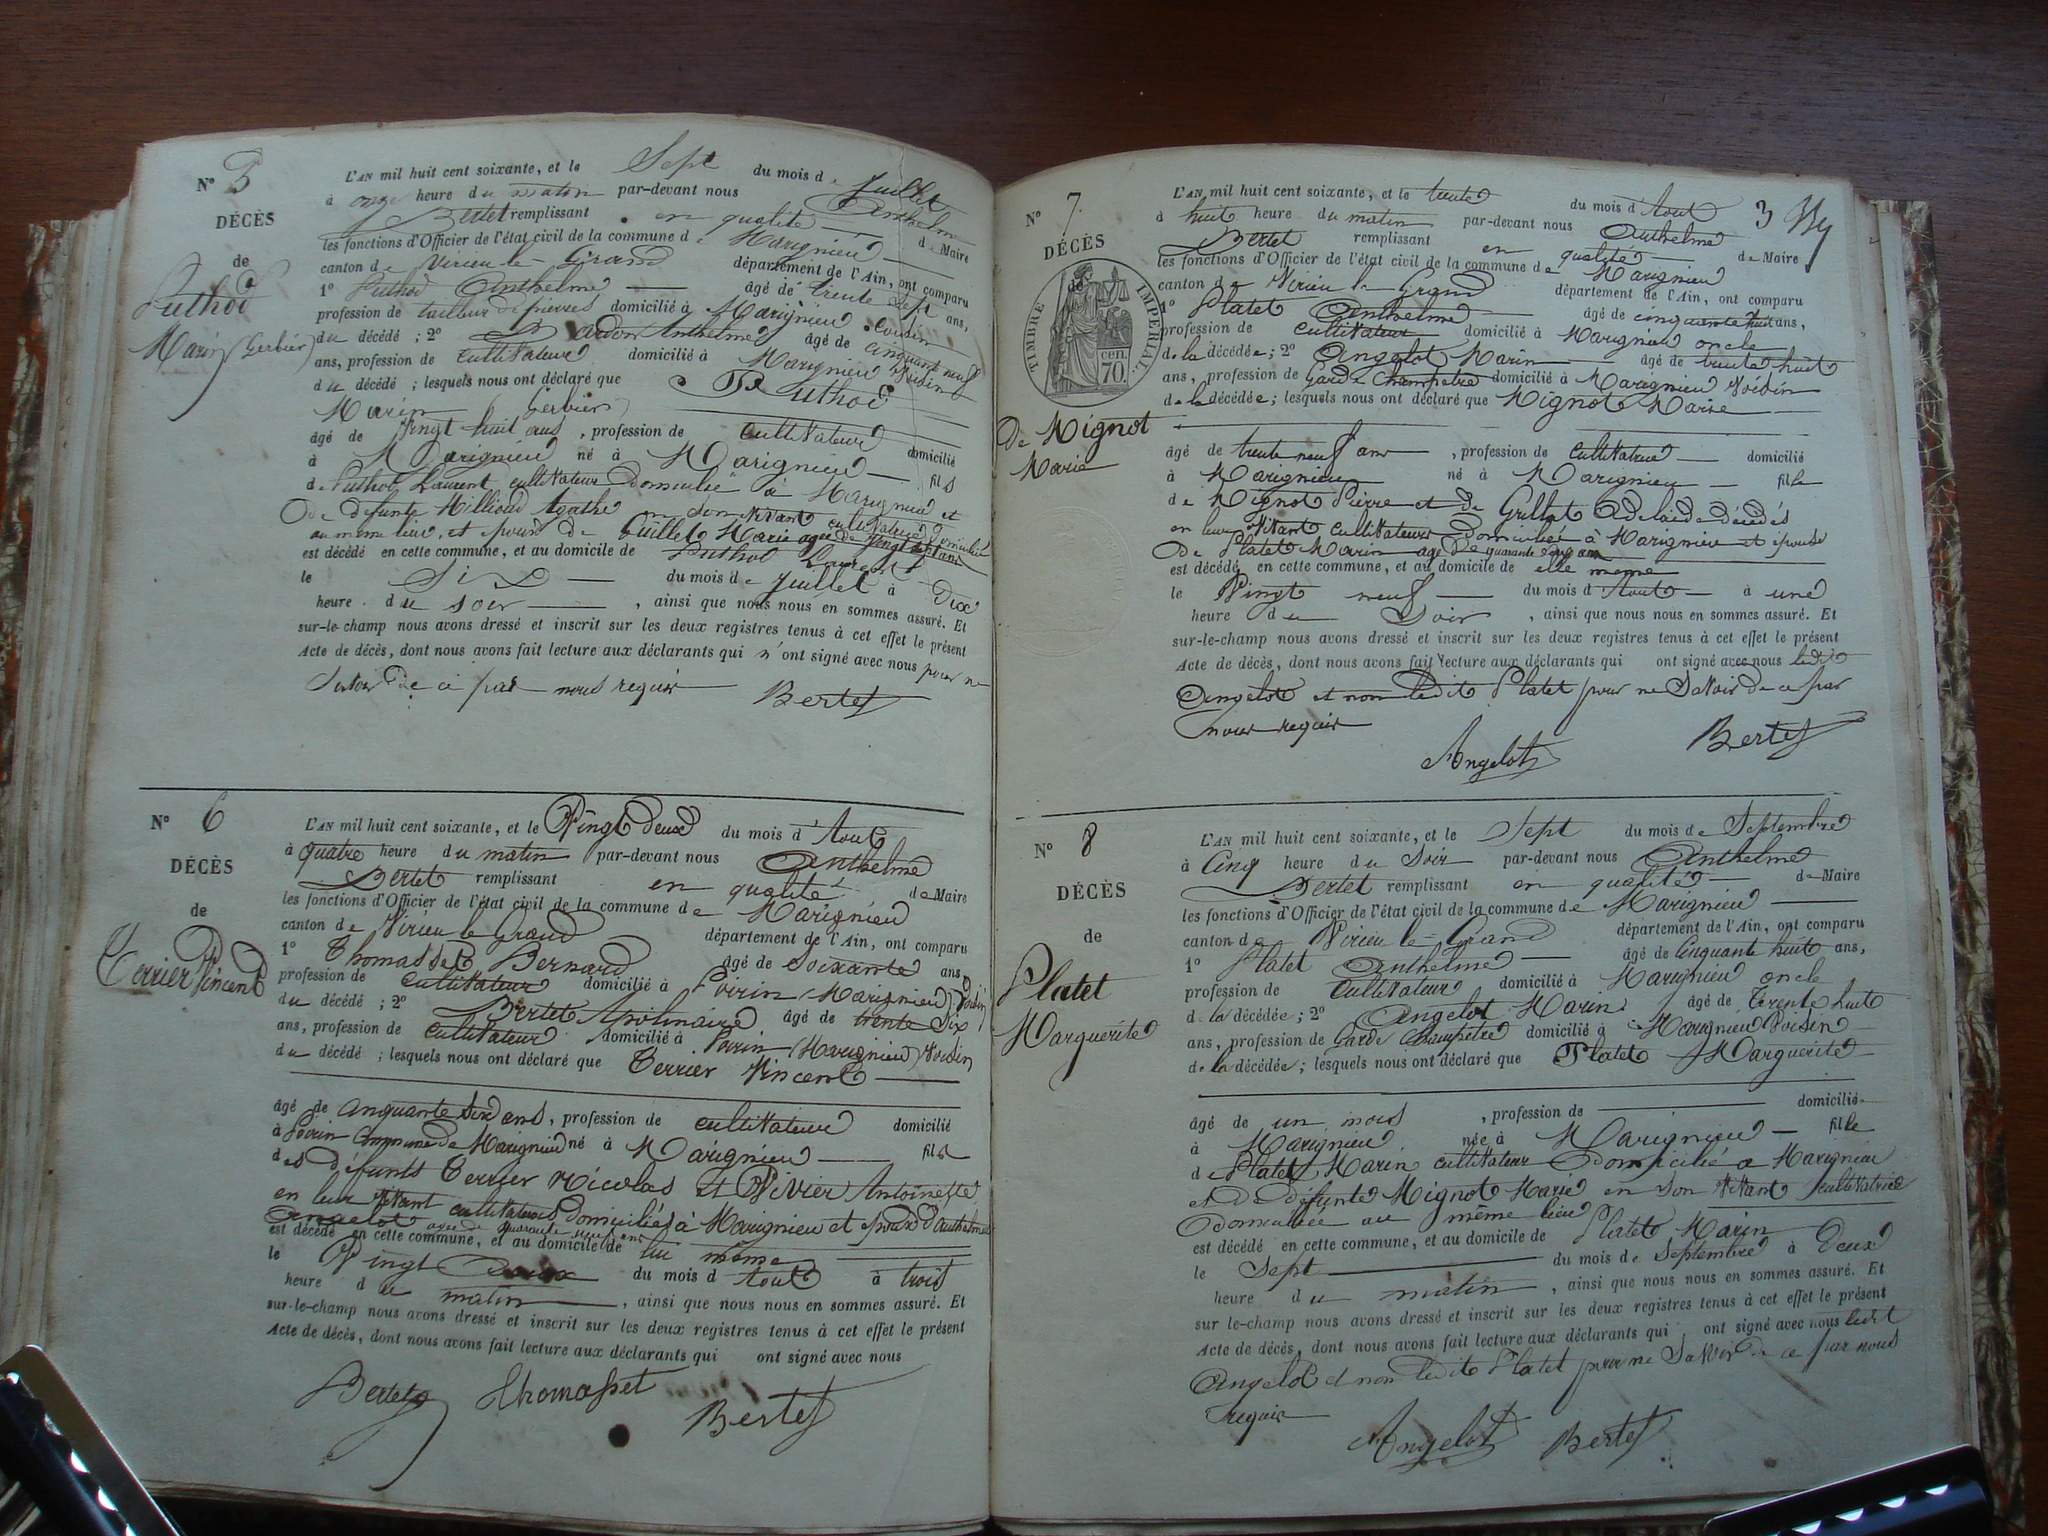 N° 5
DÉCÈS
de
Puthod
Marin (Gerbier)
L'AN mil huit cent soixante, et le Sept du mois de Juillet
à onze heure du matin par-devant nous Anthelme
Bertet remplissant en qualité de Maire
les fonctions d'Officier de l'état civil de la commune de Marignieu
canton de Virieu-le-Grand département de l'Ain, ont comparu
1° Puthod Anthelme âgé de trente sept ans,
profession de tailleur de pierres domicilié à Marignieu Cousin
du décédé ; 2° Bardon Anthelme âgé de cinquante neuf
ans, profession de cultivateur domicilié à Marignieu Voisin
du décédé ; lesquels nous ont déclaré que Puthod
Marin (Gerbier)
âgé de Vingt huit ans, profession de cultivateur domicilié
à Marignieu né à Marignieu fils
de Puthod Laurent cultivateur domicilié à Marignieu et
de défunte Millioud Agathe en son vivant cultivatrice domiciliée
au même lieu, et époux de Guillet Marie agée de Vingt sept ans
est décédé en cette commune, et au domicile de Puthod Laurent
le Six du mois de Juillet à Dix
heure du soir, ainsi que nous nous en sommes assuré. Et
sur-le-champ nous avons dressé et inscrit sur les deux registres tenus à cet effet le présent
Acte de décès, dont nous avons fait lecture aux déclarants qui n'ont signé avec nous pour ne
Savoir de ce par nous requis Bertet
N° 6
DÉCÈS
de
Terrier Vincent
L'AN mil huit cent soixante, et le Vingt deux du mois d'Aout
à quatre heure du matin par-devant nous Anthelme
Bertet remplissant en qualité de Maire
les fonctions d'Officier de l'état civil de la commune de Marignieu
canton de Virieu le Grand département de l'Ain, ont comparu
1° Thomasset Bernard âgé de Soixante ans
profession de Cultivateur domicilié à Poirin (Marignieu) Voisin
du décédé ; 2° Bertet Apolinaire âgé de trente Six
ans, profession de Cultivateur domicilié à Poirin (Marignieu) Voisin
du décédé ; lesquels nous ont déclaré que Terrier Vincent
âgé de cinquante Six ans, profession de cultivateur domicilié
à Poirin Commune de Marignieu né à Marignieu fils
des défunts Terrier Nicolas et Vivier Antoinette
en leur vivant cultivateurs domiciliés à Marignieu et époux d'Anthelmette
Angelot agée de quarante neuf ans
est décédé en cette commune, et au domicile de lui même
le Vingt Deux du mois d'Aout à trois
heure du matin, ainsi que nous nous en sommes assuré. Et
sur-le-champ nous avons dressé et inscrit sur les deux registres tenus à cet effet le présent
Acte de décès, dont nous avons fait lecture aux déclarants qui ont signé avec nous
Bertet Thomasset Bertet
3
N° 7.
DÉCÈS
TIMBRE IMPÉRIAL.
cen. 70.
De Mignot
Marie
L'AN mil huit cent soixante, et le trente du mois d'Aout
à huit heure du matin par-devant nous Anthelme
Bertet remplissant en qualité de Maire
les fonctions d'Officier de l'état civil de la commune de Marignieu
canton de Virieu le Grand département de l'Ain, ont comparu
1° Platet Anthelme âgé de cinquante huit ans,
profession de cultivateur domicilié à Marignieu oncle
de la décédée ; 2° Angelot Marin âgé de trente huit
ans, profession de Garde Champetre domicilié à Marignieu Voisin
de la décédée ; lesquels nous ont déclaré que Mignot Marie
âgé de trente neuf ans, profession de Cultivatrice domicilié
à Marignieu né à Marignieu fille
de Mignot Pierre et de Grillet Adelaide décédés
en leur Vivant Cultivateurs domiciliés à Marignieu et épouse
De Platet Marin agé de quarante ans
est décédé en cette commune, et au domicile de elle même
le Vingt neuf du mois d'Aout à une
heure du Soir, ainsi que nous nous en sommes assuré. Et
sur-le-champ nous avons dressé et inscrit sur les deux registres tenus à cet effet le présent
Acte de décès, dont nous avons fait lecture aux déclarants qui ont signé avec nous ledit
Angelot et non ledit Platet pour ne Savoir de ce par
nous requis
Angelot Bertet
N° 8
DÉCÈS
de
Platet
Marguerite
L'AN mil huit cent soixante, et le Sept du mois de Septembre
à Cinq heure du Soir par-devant nous Anthelme
Bertet remplissant en qualité de Maire
les fonctions d'Officier de l'état civil de la commune de Marignieu
canton de Virieu le-Grand département de l'Ain, ont comparu
1° Platet Anthelme âgé de Cinquante huit ans,
profession de Cultivateur domicilié à Marignieu oncle
de la décédée ; 2° Angelot Marin âgé de Trente huit
ans, profession de Garde Champetre domicilié à Marignieu Voisin
de la décédée ; lesquels nous ont déclaré que Platet Marguerite
âgé de un mois, profession de domicilié
à Marignieu née à Marignieu fille
de Platet Marin cultivateur domicilié à Marignieu
et de défunte Mignot Marie en son Vivant Cultivatrice
domiciliée au même lieu
est décédé en cette commune, et au domicile de Platet Marin
le Sept du mois de Septembre à Deux
heure du matin, ainsi que nous nous en sommes assuré. Et
sur le-champ nous avons dressé et inscrit sur les deux registres tenus à cet effet le présent
Acte de décès, dont nous avons fait lecture aux déclarants qui ont signé avec nous ledit
Angelot et non ledit Platet pour ne Savoir de ce par nous
requis
Angelot Bertet